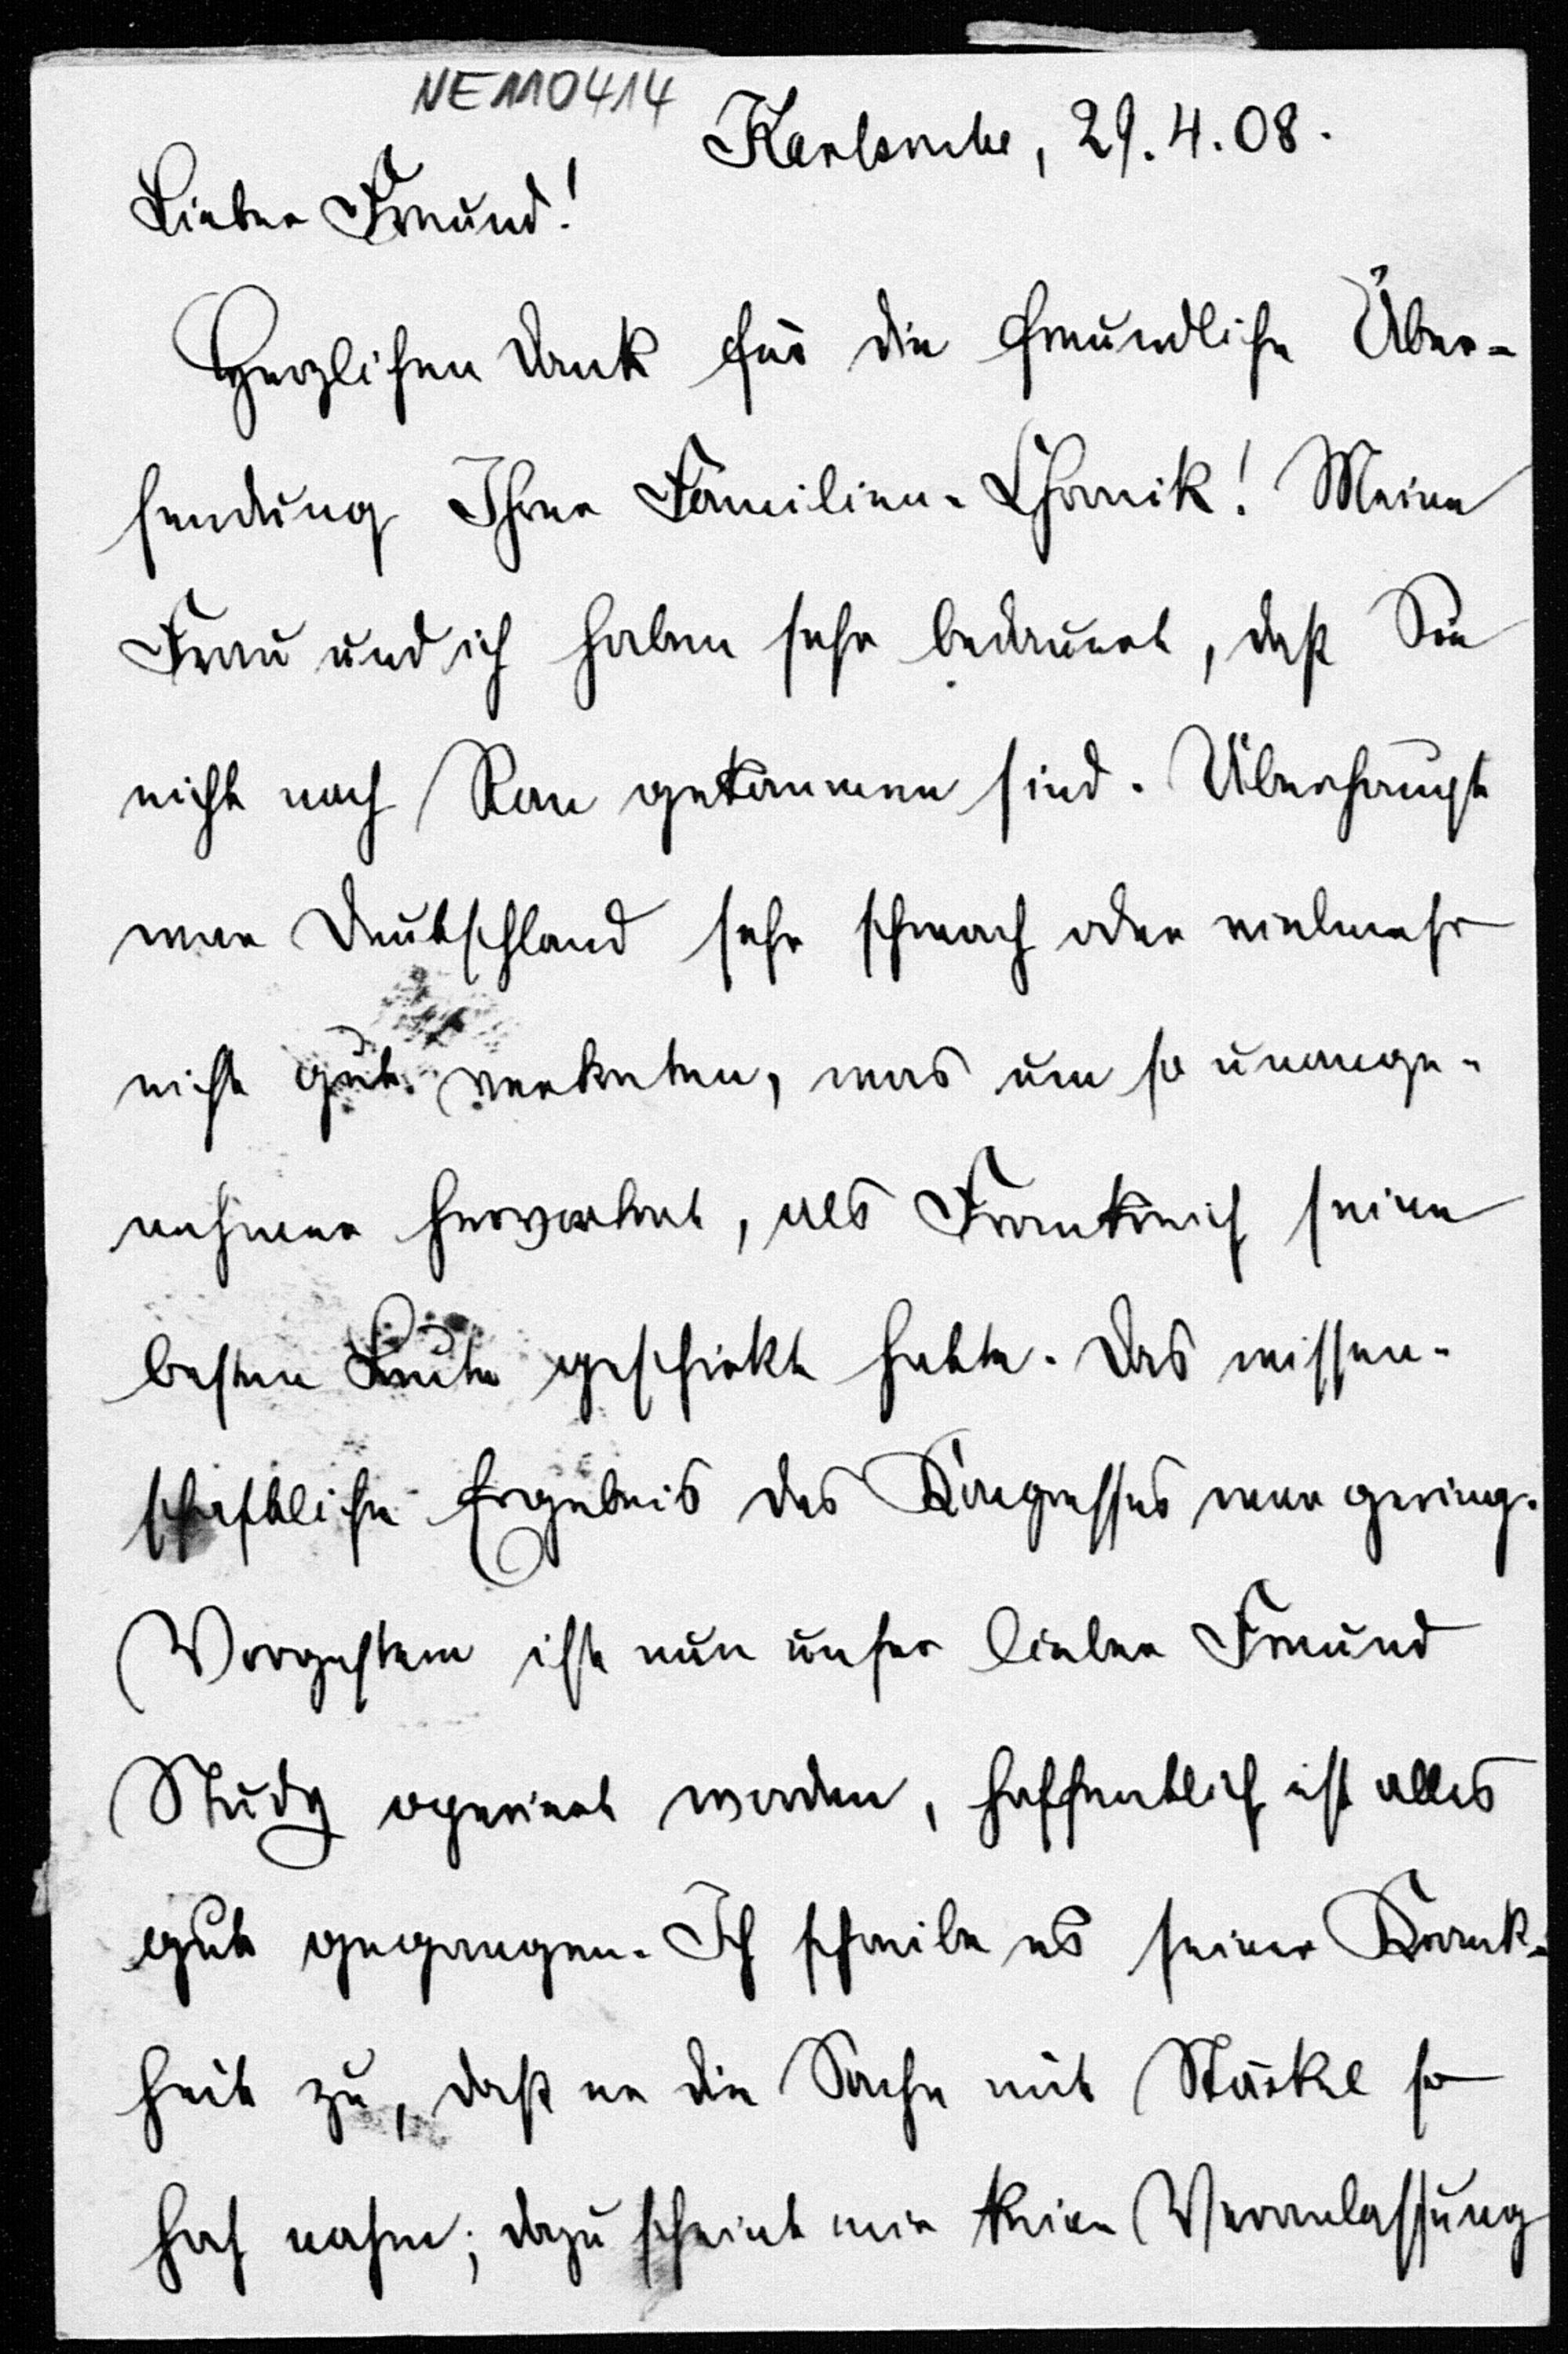 NE110414
Karlsruhe, 29. 4. 08.
Lieber Freund!
Herzlichen Dank für die freundliche Über-
sendung Ihrer Familien-Chronik! Meine
Frau und ich haben sehr bedauert, daß Sie
nicht nach Rom gekommen sind. Überhaupt
war Deutschland sehr schwach oder vielmehr
nicht gut vertreten, was um so unange-
nehmer hervortrat, als Frankreich seine
besten Leute geschickt hatte. Das wissen-
schaftliche Ergebnis des Kongresses war gering.
Vorgestern ist nun unser lieber Freund
Study operiert worden, hoffentlich ist alles
gut gegangen. Ich schreibe es seiner Krank-
heit zu, daß er die Sache mit Stäckel so
hoch nahm; dazu scheint mir keine Veranlassung